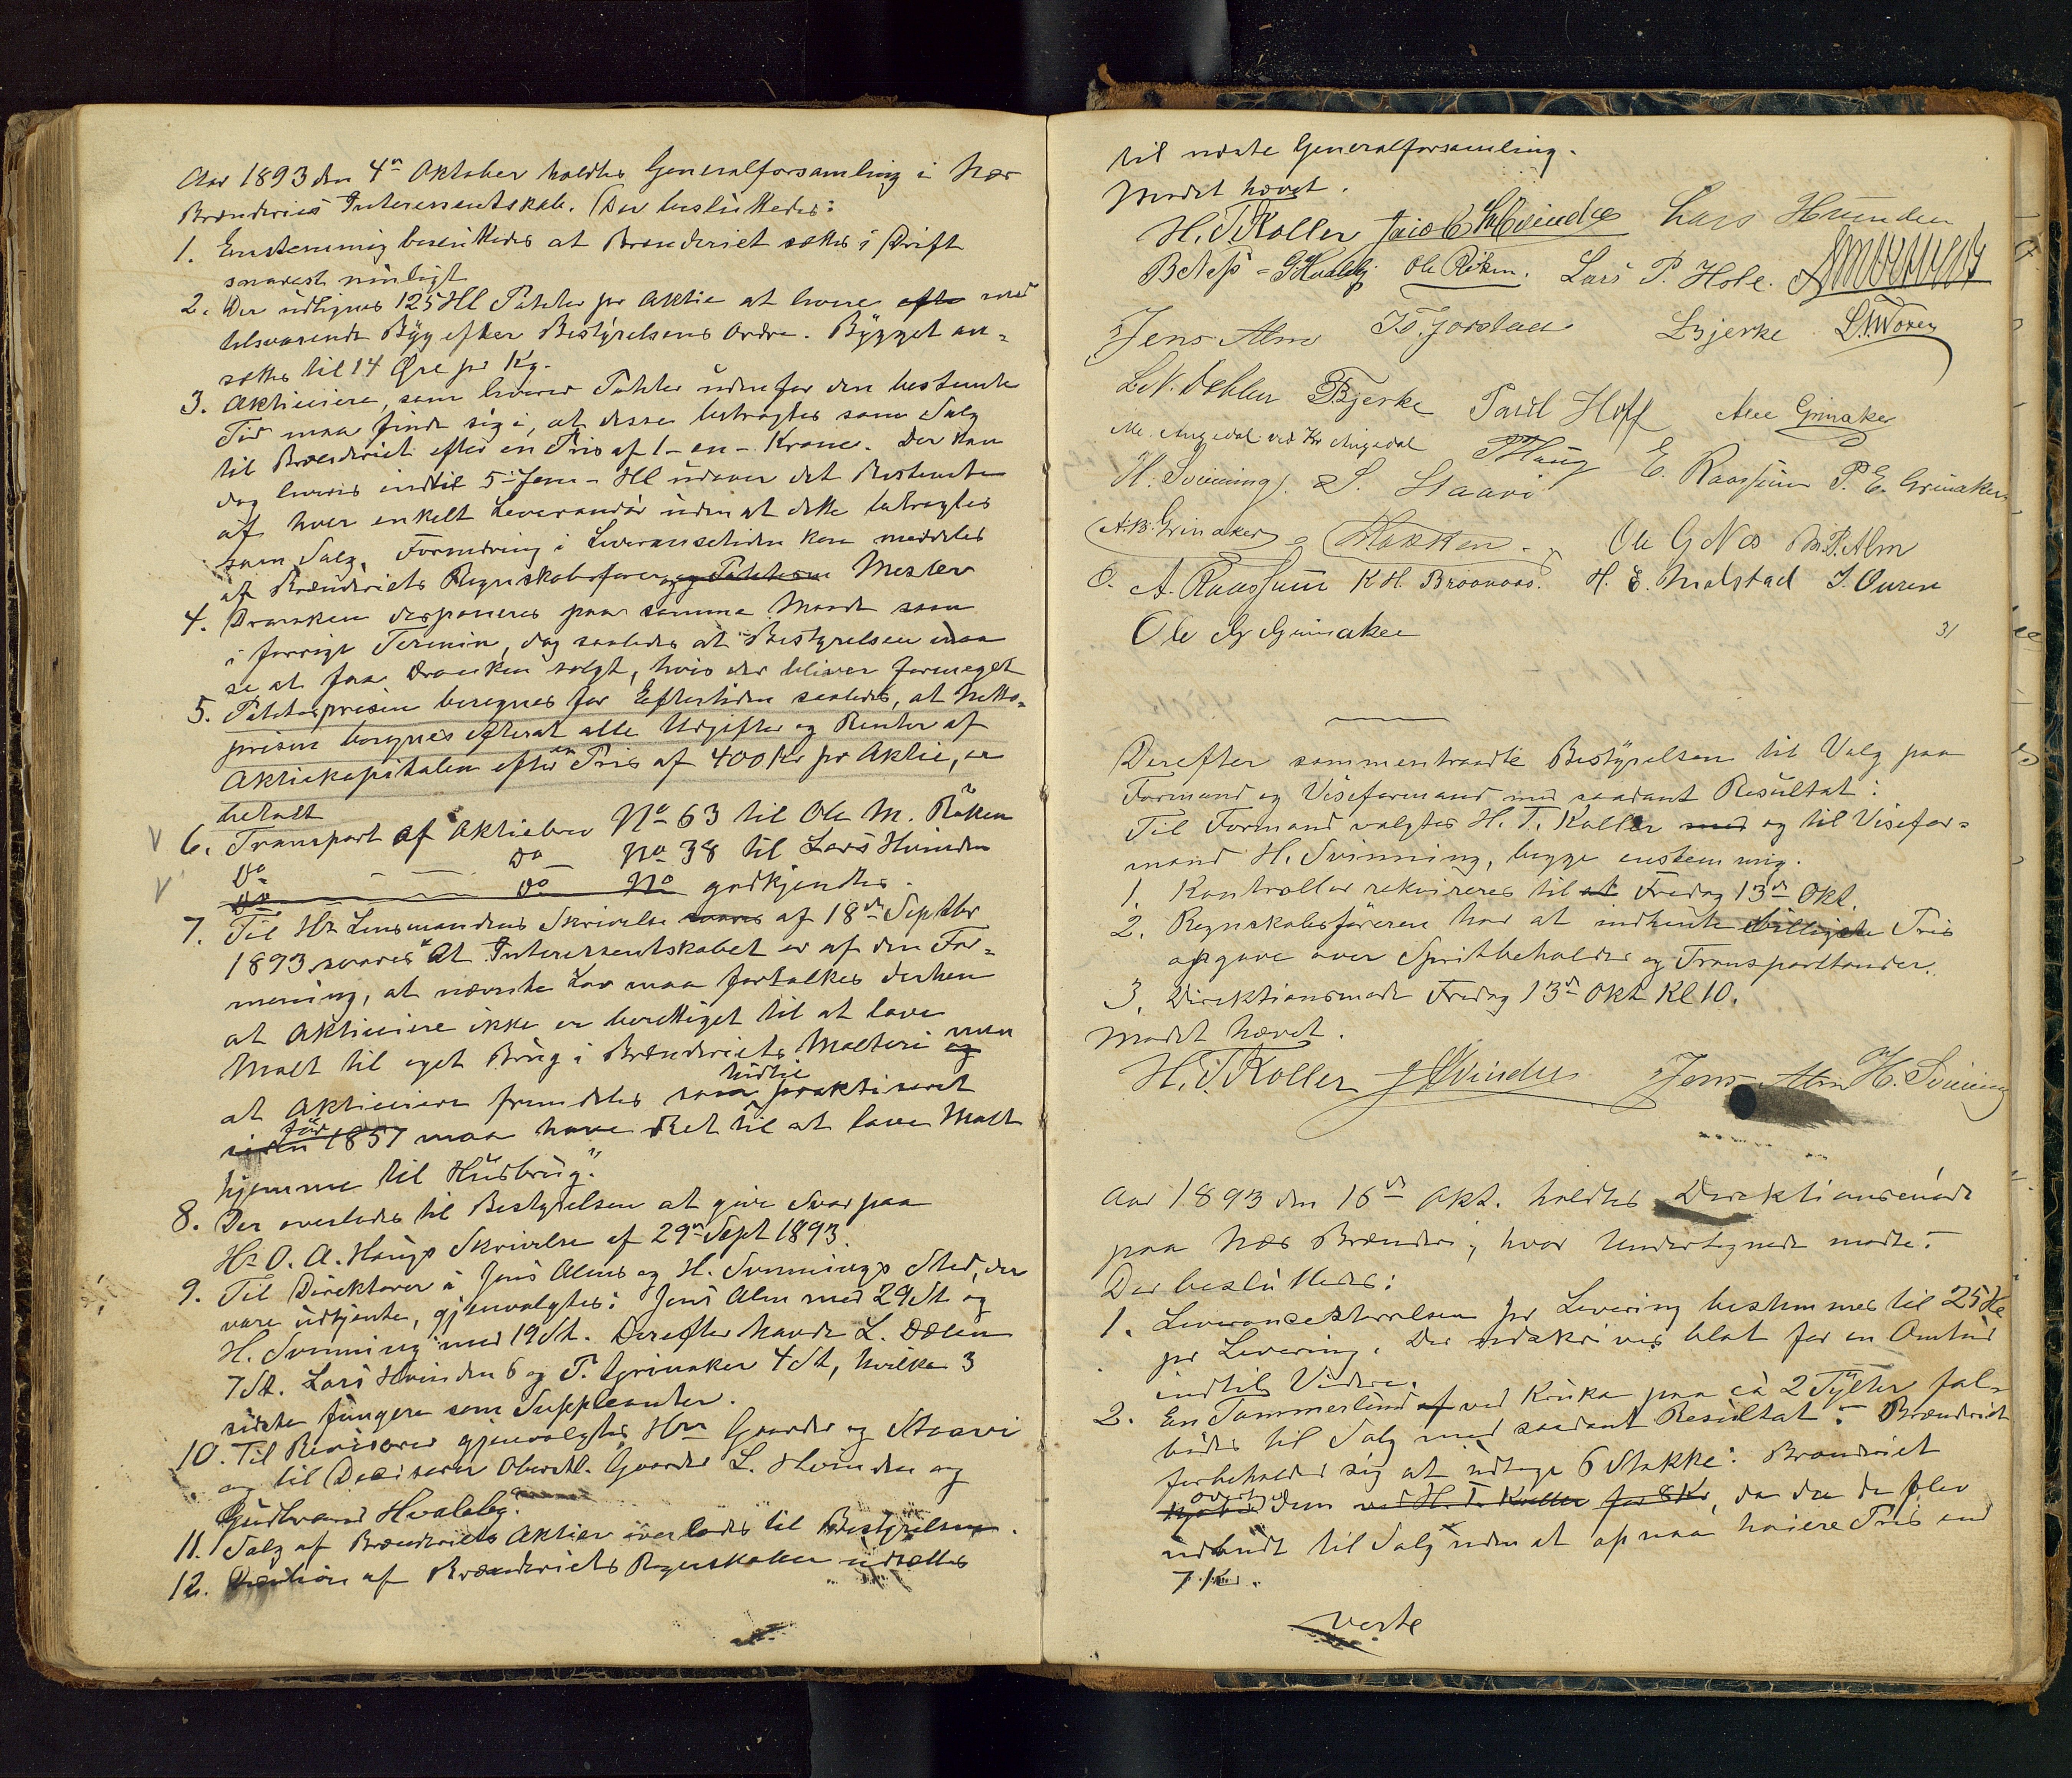 Aar 1893 den 4n Oktober holdtes Generalforsamling i Næs
Brænderies Interessentskab. Der besluttedes:
1. Enstemmig besluttedes at Brænderiet sættes i Drift
snarest muligt
2. Der udlignes 125 Hl Poteter pr Aktie at levere efter med
tilsvarende Byg efter Bestyrelsens Ordre. Bygget an-
sættes til 14 Øre pr Kg.
3. Aktieeiere, som leverer Poteter udenfor den bestemte
Tid maa finde sig i, at disse betragtes som Salg
til Brænderiet efter en Pris af 1 - en - Krone. Der kan
dog leveres indtil 5 - fem - Hl udover det Bestemte
af hver enkelt Leverandør uden at dette betragtes
som Salg. Forandring i Leverancetiden kan meddeles
af Brænderiets Regnskabsfører og Mester
4. Dranken disponeres paa samme Maade som
i forrige Termin, dog saaledes at Bestyrelsen maa
se at faa Dranken solgt, hvis der bliver formeget
5. Potetesprisen beregnes for Eftertiden saaledes, at Netto-
prisen beregnes efterat alle Udgifter og Renter af
Aktiekapitalen efter en Pris af 400 Kr pr Aktie, er
betalt
6. Transport af Aktiebrev No 63 til Ole M. Røken
Do Do No 38 til Lars Hvinden
Do Do No godkjendtes.
7. Til Hr Lensmandens Skrivelse svares af 18de Septbr
1893 svares "At Interessentskabet er af den For-
mening, at nævnte Lov maa fortolkes derhen
at Aktieeiere ikke er berettiget til at lave
Malt til eget Brug i Brænderiets Malteri og men
at Aktieeiere fremdeles som hidtil praktiseret
siden før 1857 maa have Ret til at lave Malt
hjemme til Husbrug."
8. Der overlodes til Bestyrelsen at give Svar paa
Hr O. A. Haugs Skrivelse af 29n Sept 1893.
9. Til Direktører i Jens Alms og H. Svinnings Sted, der
vare udtjente, gjenvalgtes: Jens Alm med 29 St og
H. Svinning med 19 St. Derefter havde L. Dælen
7 St. Lars Hvinden 6 og P. Grinaker 4 St, hvilke 3
sidste fungere som Suppleanter.
10. Til Revisorer gjenvalgtes Hrr Gaarder og Staavi
og til Decisorer Oberstl. Gaarder L. Hvinden og
Gudbrand Hvaleby.
11. Salg af Brænderiets Aktier overlodes til Bestyrelsen.
12. Decision af Brænderiets Regnskaber udsættes
til næste Generalforsamling.
Mødet hævet.
H. T Koller Jacob Hvinden Lars Hvinden
B Næss G Hvaleby Ole Røken. Lars P. Hole.
Jens Alm T. Fjorstad L Bjerke
L. N. Dæhlen Bjerke Paul Hoff Ale Grinaker
M. Augedal ved Kr Augedal P Haug E. Raassum P. E. Grinaker
H. Svinning. S. Staavi
A. B. Grinaker Ole G Næs M. P. Alm
O. A. Raassum K. H. Braanaas. H. E. Molstad J. Ouren
Ole G Grinaker 31
Derefter sammentraadte Bestyrelsen til Valg paa
Formand og Viseformand med saadant Resultat:
Til Formand valgtes H. T. Koller med og til Visefor-
mand H. Svinning, begge enstemmig.
1. Kontrollør rekvireres til at Fredag 13de Okt.
2. Regnskabsføreren har at indhente billigste Pris
opgave over Spritbeholder og Transporttønder.
3. Direktionsmøde Fredag 13de Okt Kl 10.
Mødet hævet.
H. T Koller J Hvinden Jens Alm H. Svinning
Aar 1893 den 16de Okt. holdtes Direktionsmøde
paa Næs Brænderi, hvor Undertegnede mødte.
Der besluttedes:
1. Leverancestørrelsen pr Levering bestemmes til 25 Hl
pr Levering. Der udskrives blot for en Omtur
indtil Videre.
2. En Tømmerlund af ved Kruka paa ca 2 Tylter fal-
bødes til Salg med saadant Resultat: Brænderiet
forbeholder sig at udtage 6 Stokke: Brænderiet
overtog dem ved H. T. Koller for 8 Kr, da de da blev
udbudt til Salg uden at opnaa høiere Pris end
7 Kr.
verte